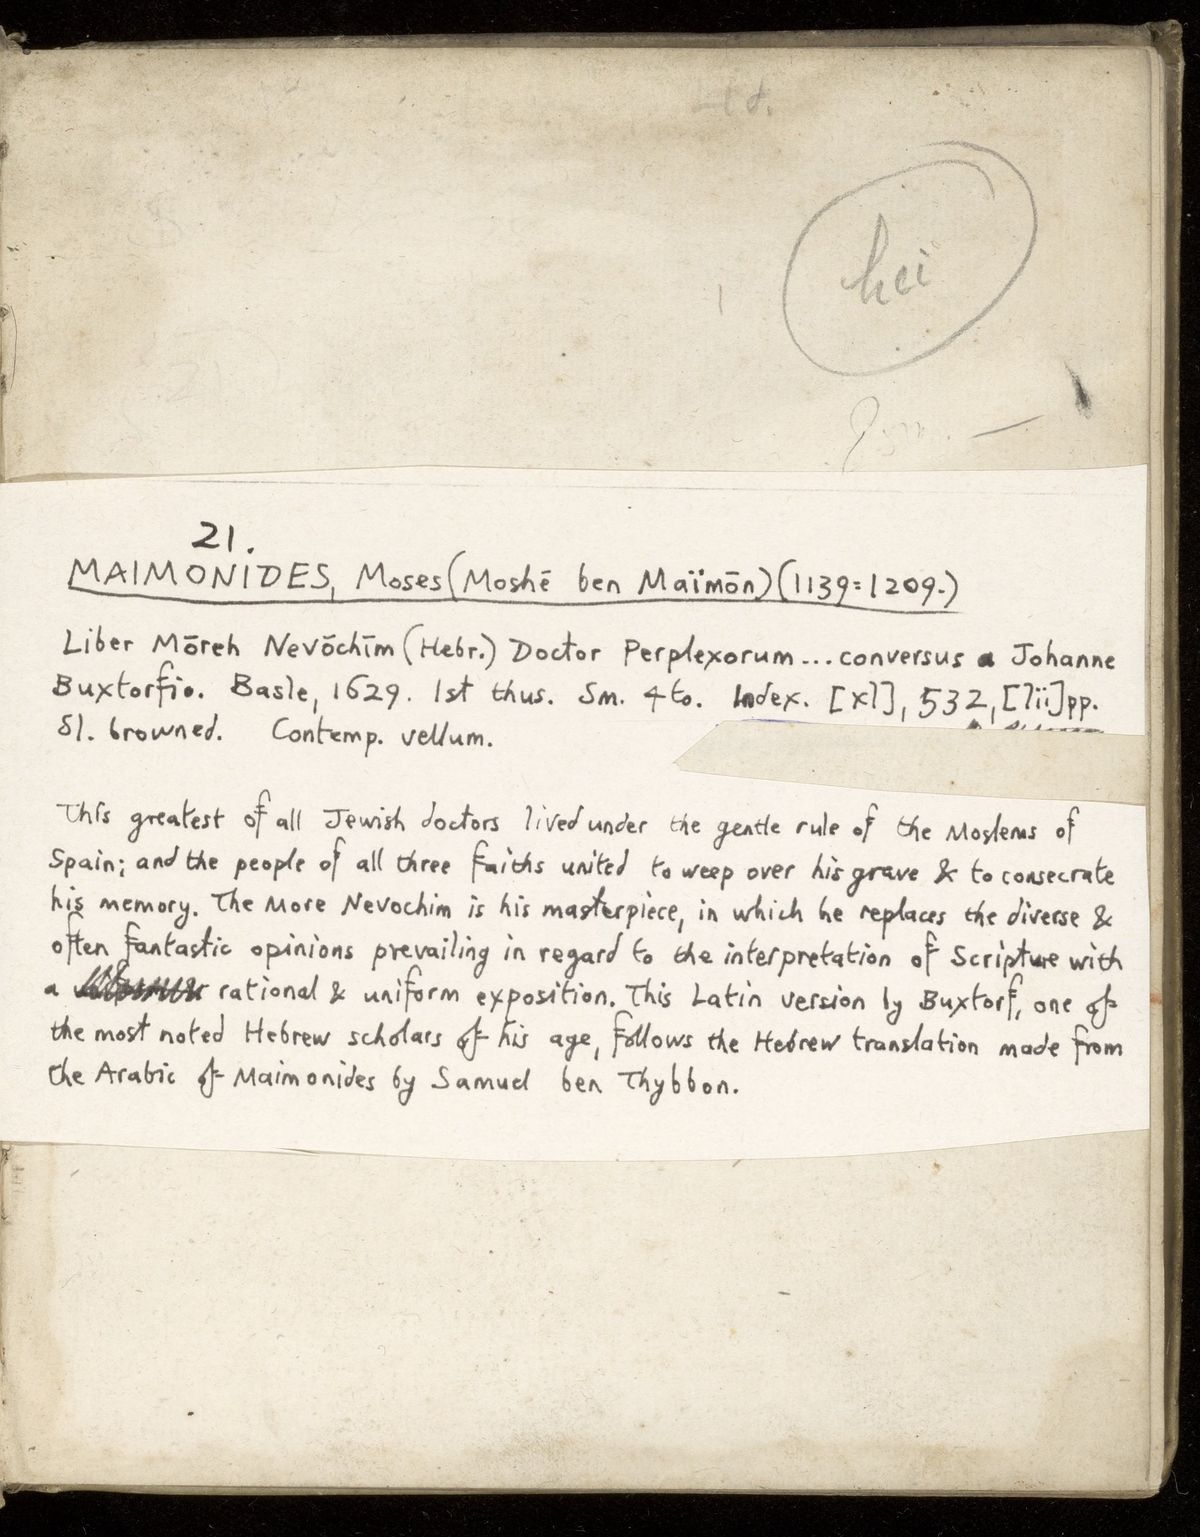 hei
21.
MAIMONIDES, Moses (Moshē ben Maïmōn) (1139=1209.)
Liber Mōreh Nevōchīm (Hebr.) Doctor Perplexorum ... conversus a Johanne
Buxtorfio. Basle, 1629. 1st thus. Sm. 4to. Index. [xl], 532, [lii] pp.
Sl. browned. Contemp. vellum.
This greatest of all Jewish doctors lived under the gentle rule of the Moslems of
Spain; and the people of all three faiths united to weep over his grave & to consecrate
his memory. The More Nevochim is his masterpiece, in which he replaces the diverse &
often fantastic opinions prevailing in regard to the interpretation of Scripture with
a rational & uniform exposition. This Latin version by Buxtorf, one of
the most noted Hebrew scholars of his age, follows the Hebrew translation made from
the Arabic of Maimonides by Samuel ben Thybbon.